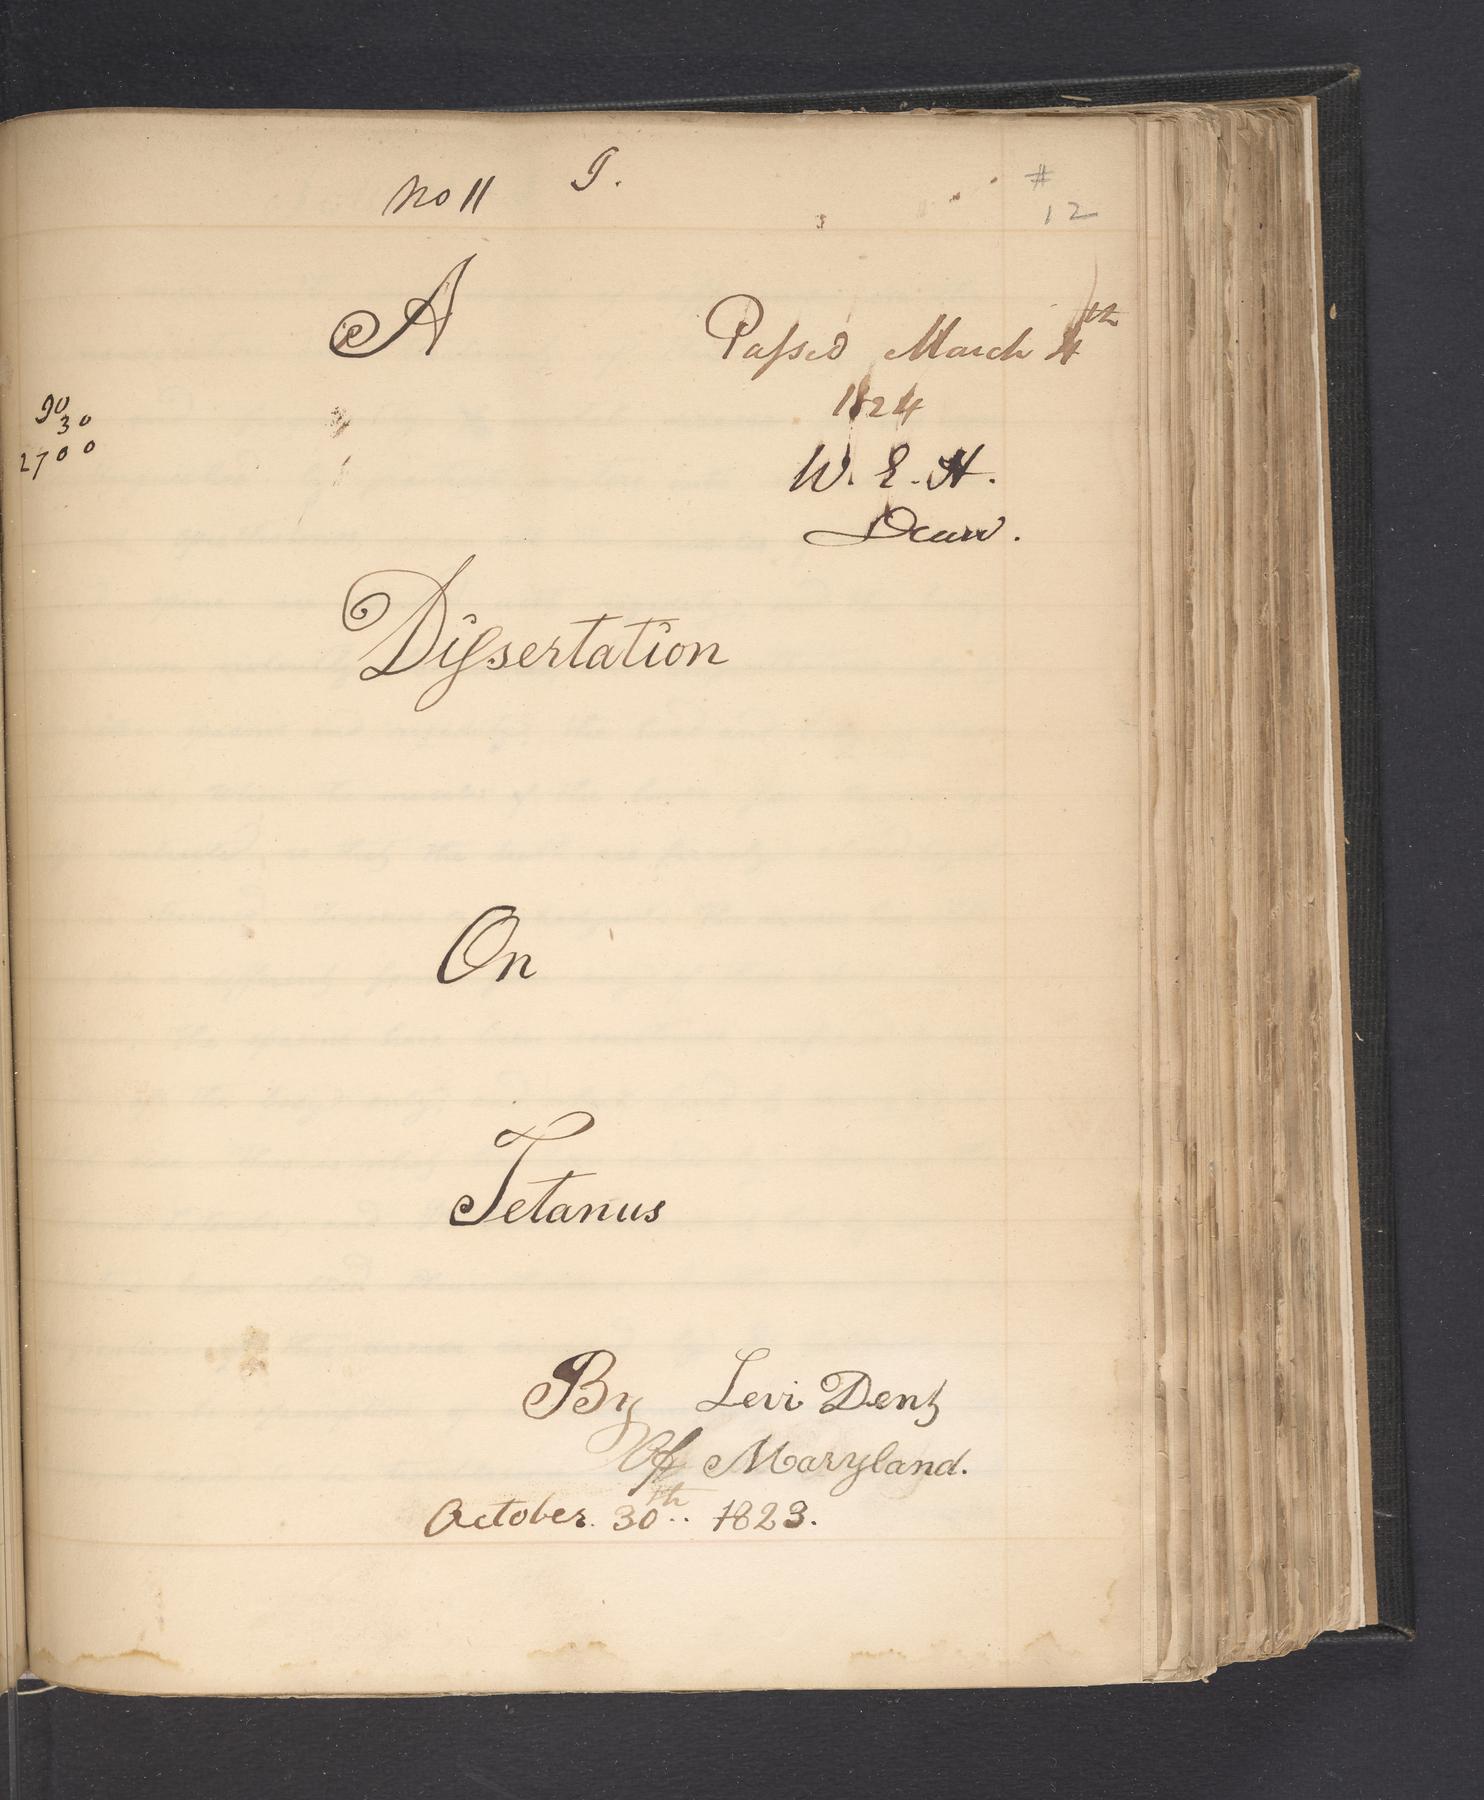 No 11 9.
#
12
A
Passed March 4th
1824
W. E. H.
Dean.
90
30
2700
Dissertation
On
Tetanus
By Levi Dentz
Of Maryland.
October 30th.. 1823.